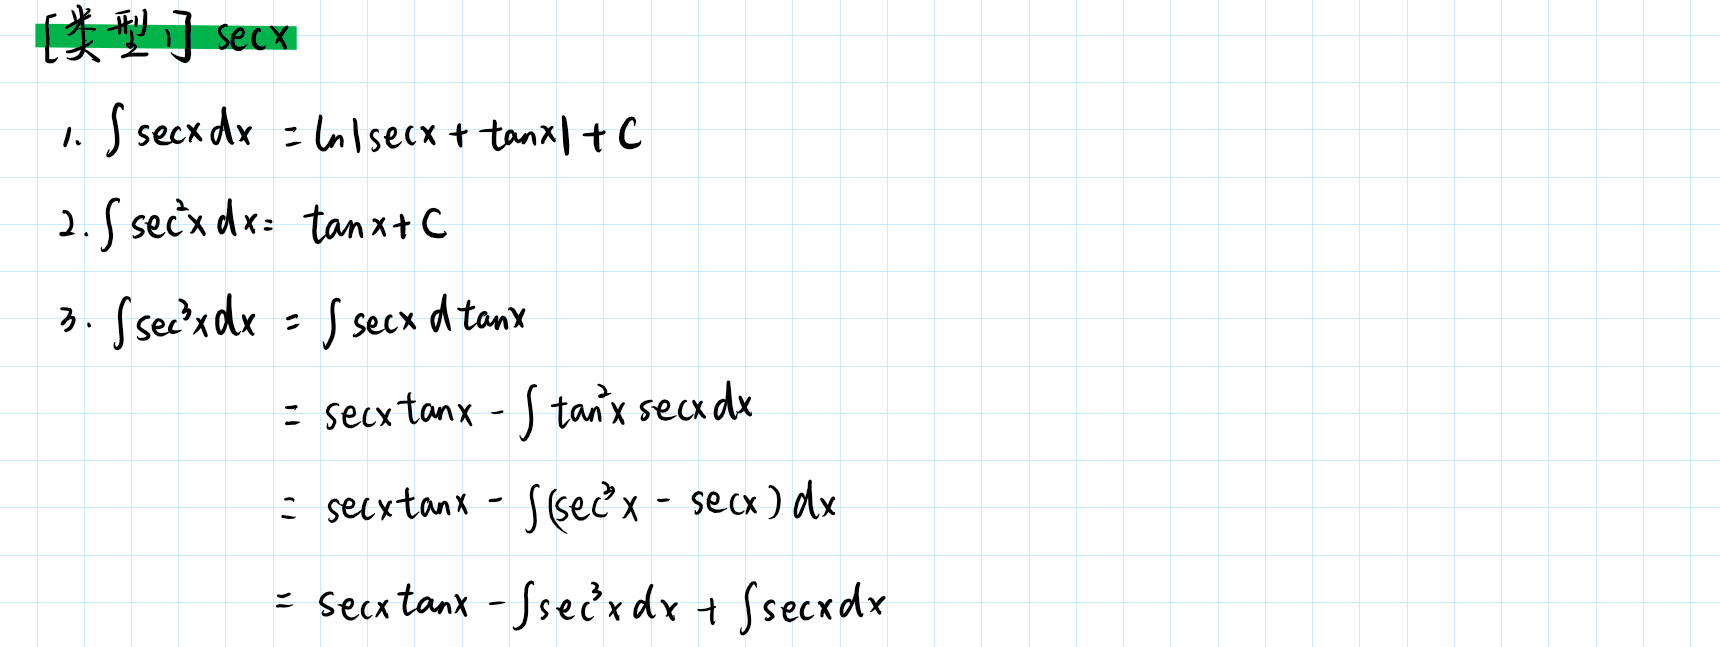 [类型1] secx
1. ∫ secx dx = ln|secx + tanx| + C
2. ∫ sec²x dx = tanx + C
3. ∫ sec³x dx = ∫ secx d tanx
= secx tanx - ∫ tan²x secx dx
= secx tanx - ∫ (sec³x - secx) dx
= secx tanx - ∫ sec³x dx + ∫ secx dx